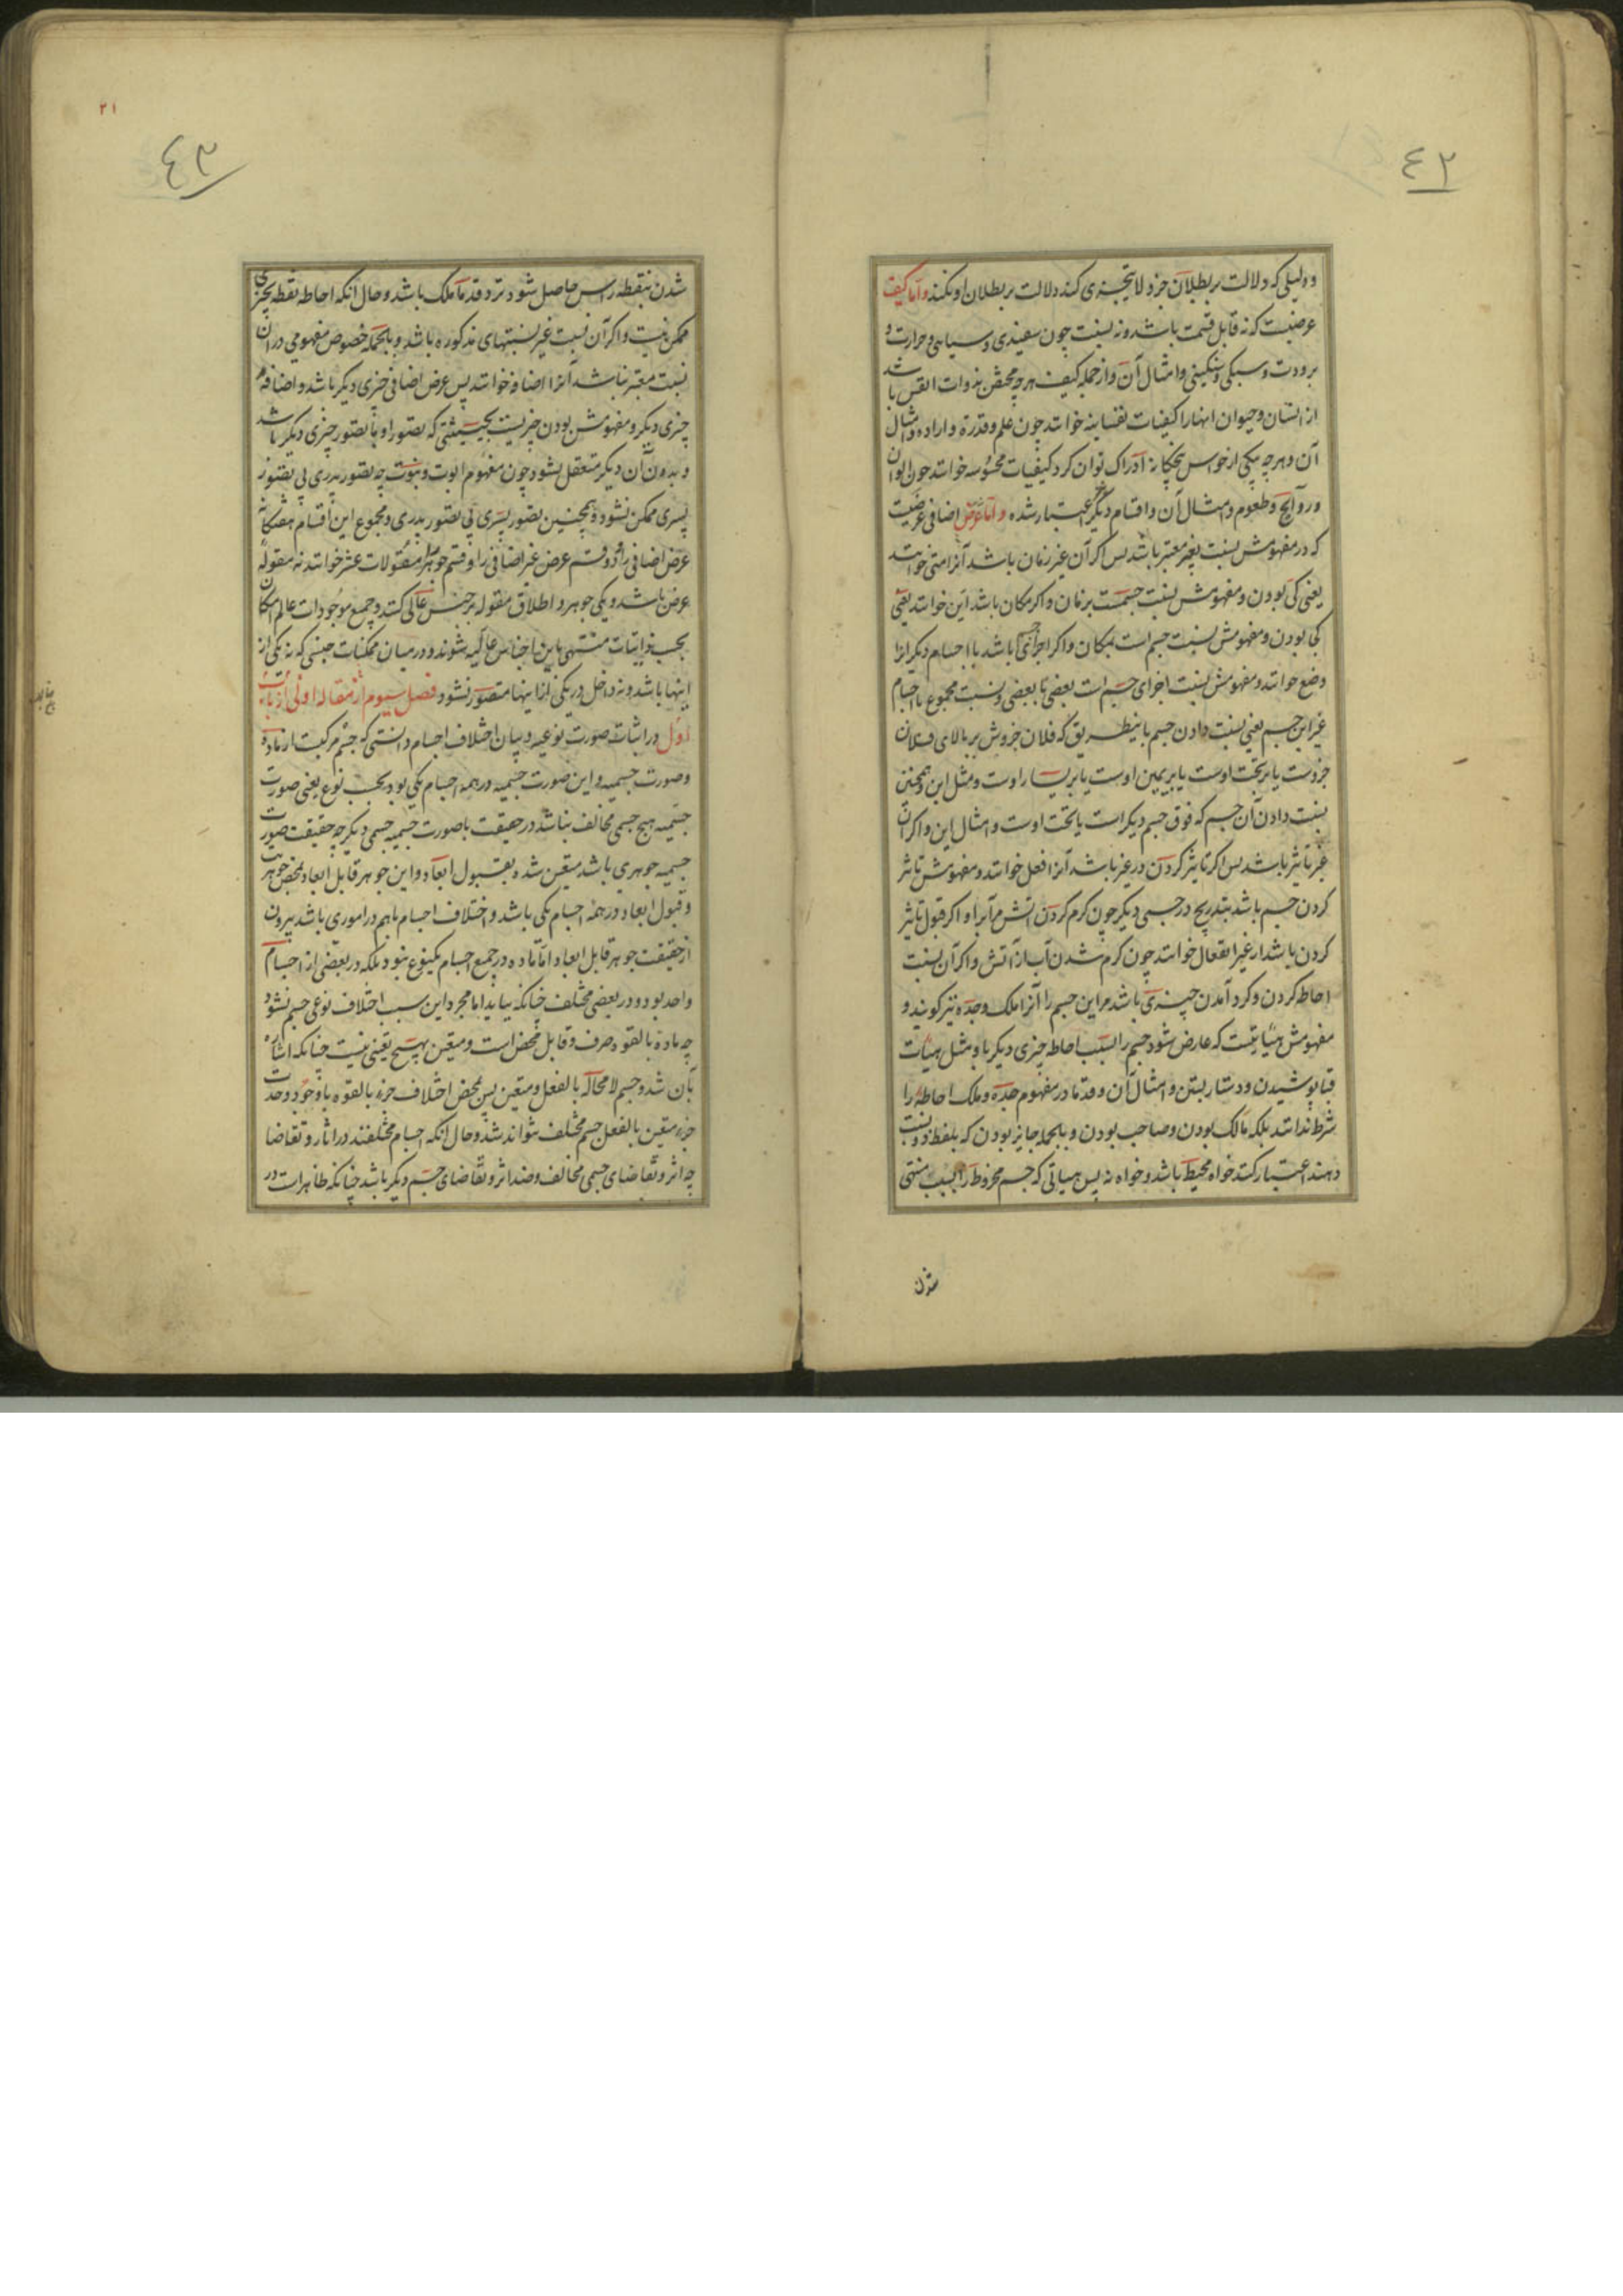 ٤٢
و دلیلی که دلالت بر بطلان جزو لا یتجزی کند دلالت بر بطلان او نکند و اما کیف
عرضیست که نه قابل قسمت باشد و نه نسبت چون سفیدی و سیاهی و حرارت و
برودت و سبکی و سنکینی و امثال آن و از جمله کیف هرچه مختص بذوات الانفس باشد
از انسان و حیوان انها را کیفیات نفسانیه خوانند چون علم و قدرة و اراده و امثال
آن و هرچه بیکی از حواس پنجکانه ادراک توان کرد کیفیات محسوسه خوانند چون الوان
و روایح و طعوم و امثال آن و اقسام دیگر اعتبار شده و اما عرض اضافی عرضیست
که در مفهومش نسبت بغیر معتبر باشد پس اکر آن غیر زمان باشد آنرا متی خوانند
یعنی کی بودن و مفهومش نسبت جسمست بزمان و اکر مکان باشد این خوانند یعنی
کجا بودن و مفهومش نسبت جسم است بمکان و اکر اجزای باشد با اجسام دیگر انرا
وضع خوانند و مفهومش نسبت اجزای جسم است بعضی با بعضی و نسبت مجموع با اجسام
غیر این جسم یعنی نسبت دادن جسم باینطریق که فلان جزوش بر بالای فلان
جزوست یا بر تحت اوست یا بر یمین اوست یا بر یسار اوست و مثل این و همچنین
نسبت دادن آن جسم که فوق جسم دیکر است یا تحت اوست و امثال این و اکر آن
غیر تاثیر باشد پس اکر تاثیر کردن در غیر باشد آنرا فعل خوانند و مفهومش تاثیر
کردن جسم باشد بتدریج در جسمی دیکر چون کرم کردن اتش مرآبرا و اکر قبول تاثیر
کردن باشد از غیر انفعال خوانند چون کرم شدن آب از آتش و اکر آن نسبت
احاطه کردن و کرد آمدن چیزی باشد مر این جسم را آنرا ملک و جده نیز کویند و
مفهومش هیأتیست که عارض شود جسم را بسبب احاطه چیزی دیکر باو مثل هیأت
قبا پوشیدن و دستار بستن و امثال آن و قدما در مفهوم جده و ملک احاطه را
شرط ندانند بلکه مالک بودن و صاحب بودن و بالجمله جایز بودن که بلفظ ذو نسبت
دهند اعتبار کنند خواه محیط باشد و خواه نه پس هیأتی که جسم مخروط را بسبب منتهی
شدن
٢١
٤٣
شدن بنقطه راس حاصل شود نزد قدما ملک باشد و حال آنکه احاطه نقطه بچیزی
ممکن نیست و اکر آن نسبت غیر نسبتهای مذکوره باشد و بالجمله خصوص مفهومی در ان
نسبت معتبر نباشد آنرا اضافه خوانند پس عرض اضافی چیزی دیکر باشد و اضافه
چیزی دیکر و مفهومش بودن چیزیست بحیثیتی که تصور او با تصور چیزی دیکر باشد
و بدون آن دیکر متعقل نشود چون مفهوم ابوت و بنوت چه تصور پدری بی تصور
پسری ممکن نشود و همچنین تصور پسری بی تصور پدری و مجموع این اقسام هفتکانه
عرض اضافی را و دو قسم عرض غیر اضافی را و قسم جوهر را مقولات عشر خوانند نه مقوله
عرض باشد و یکی جوهر و اطلاق مقوله بر جنس عالی کنند و جمیع موجودات عالم امکان
بحسب ذاتیات منتهی باین اجناس عالیه شوند و در میان ممکنات جنسی که نه یکی از
اینها باشد و نه داخل در یکی از اینها متصور نشود فصل سیوم از مقاله اولی از باب
اول در اثبات صورت نوعیه و بیان اختلاف اجسام دانستی که جسم مرکبست از ماده
و صورت جسمیه و این صورت جسمیه در همه اجسام یکی بود بحسب نوع یعنی صورت
جسمیه هیچ جسمی مخالف نباشد در حقیقت با صورت جسمیه جسمی دیکر چه حقیقت صورت
جسمیه جوهری باشد متعین شده بقبول ابعاد و این جوهر قابل ابعاد بمحض جوهریت
و قبول ابعاد در همه اجسام یکی باشد و اختلاف اجسام باهم در اموری باشد بیرون
از حقیقت جوهر قابل ابعاد اما ماده در جمیع اجسام یکنوع نبود بلکه در بعضی از اجسام
واحد بود و در بعضی مختلف چنانکه بیاید اما مجرد این سبب اختلاف نوعی جسم نشود
چه ماده بالقوه صرف و قابل محض است و متعین بهیچ تعینی نیست چنانکه اشاره
بآن شد و جسم لا محاله بالفعل و متعین پس بمحض اختلاف جزء بالقوه با وجود وحدت
جزء متعین بالفعل جسم مختلف نتواند شد و حال انکه اجسام مختلفند در اثار و تقاضا
چه اثر و تقاضای جسمی مخالف و ضد اثر و تقاضای جسم دیکر باشد چنانکه ظاهر است در